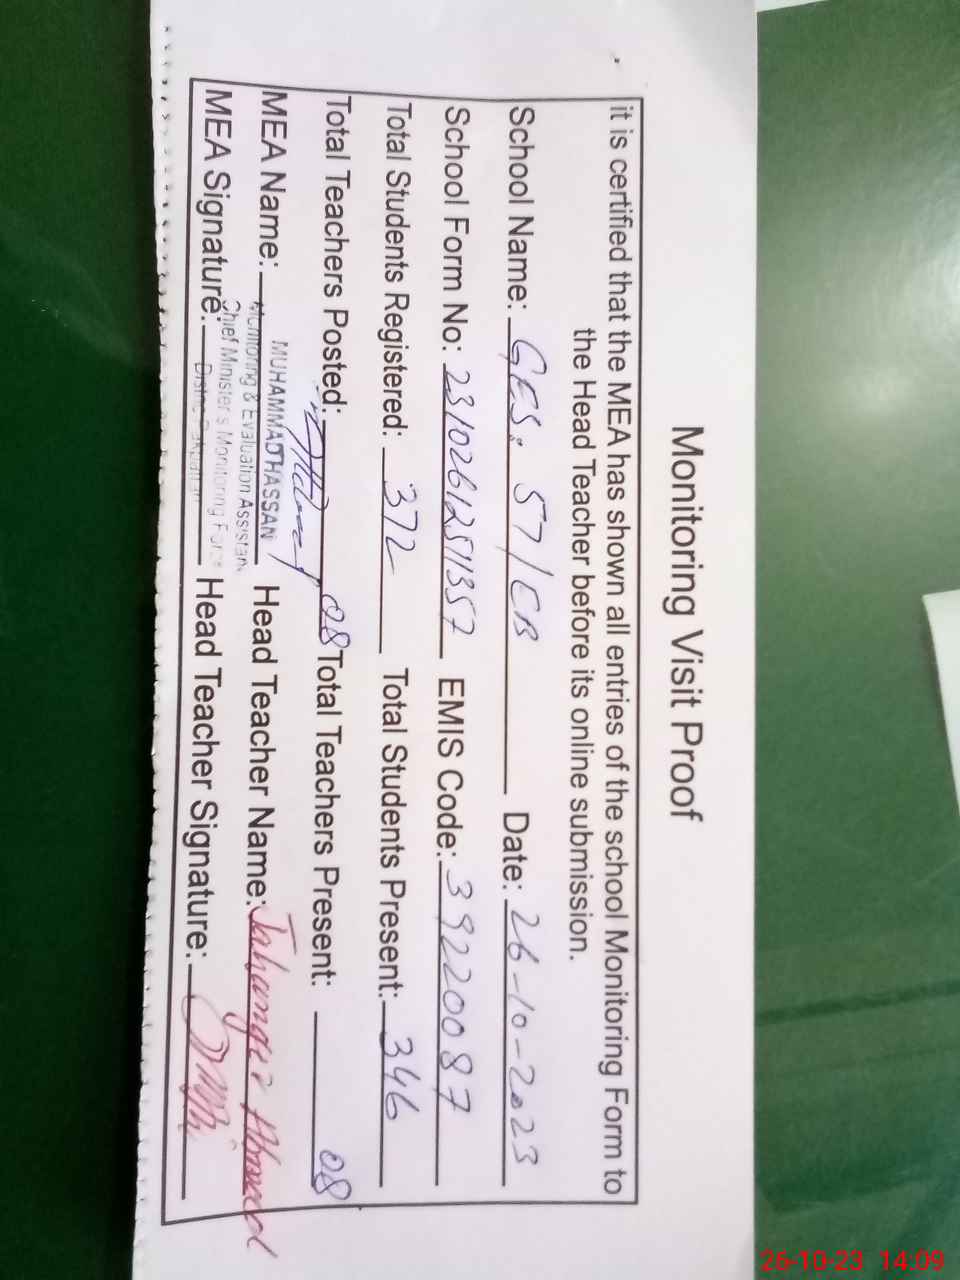 Monitoring Visit Proof
it is certified that the MEA has shown all entries of the school Monitoring Form to
the Head Teacher before its online submission.
School Name: GES. 57/EB Date: 26-10-2023
School Form No: 2310261251357 EMIS Code: 39220087
Total Students Registered: 372 Total Students Present: 346
Total Teachers Posted: 08 Total Teachers Present: 08
MEA Name: MUHAMMAD HASSAN Head Teacher Name: Jahanger Ahmed
Monitoring & Evaluation Assistan
Chief Minister's Monitoring Force
MEA Signature: District Pakpattan Head Teacher Signature:
26-10-23 14:09